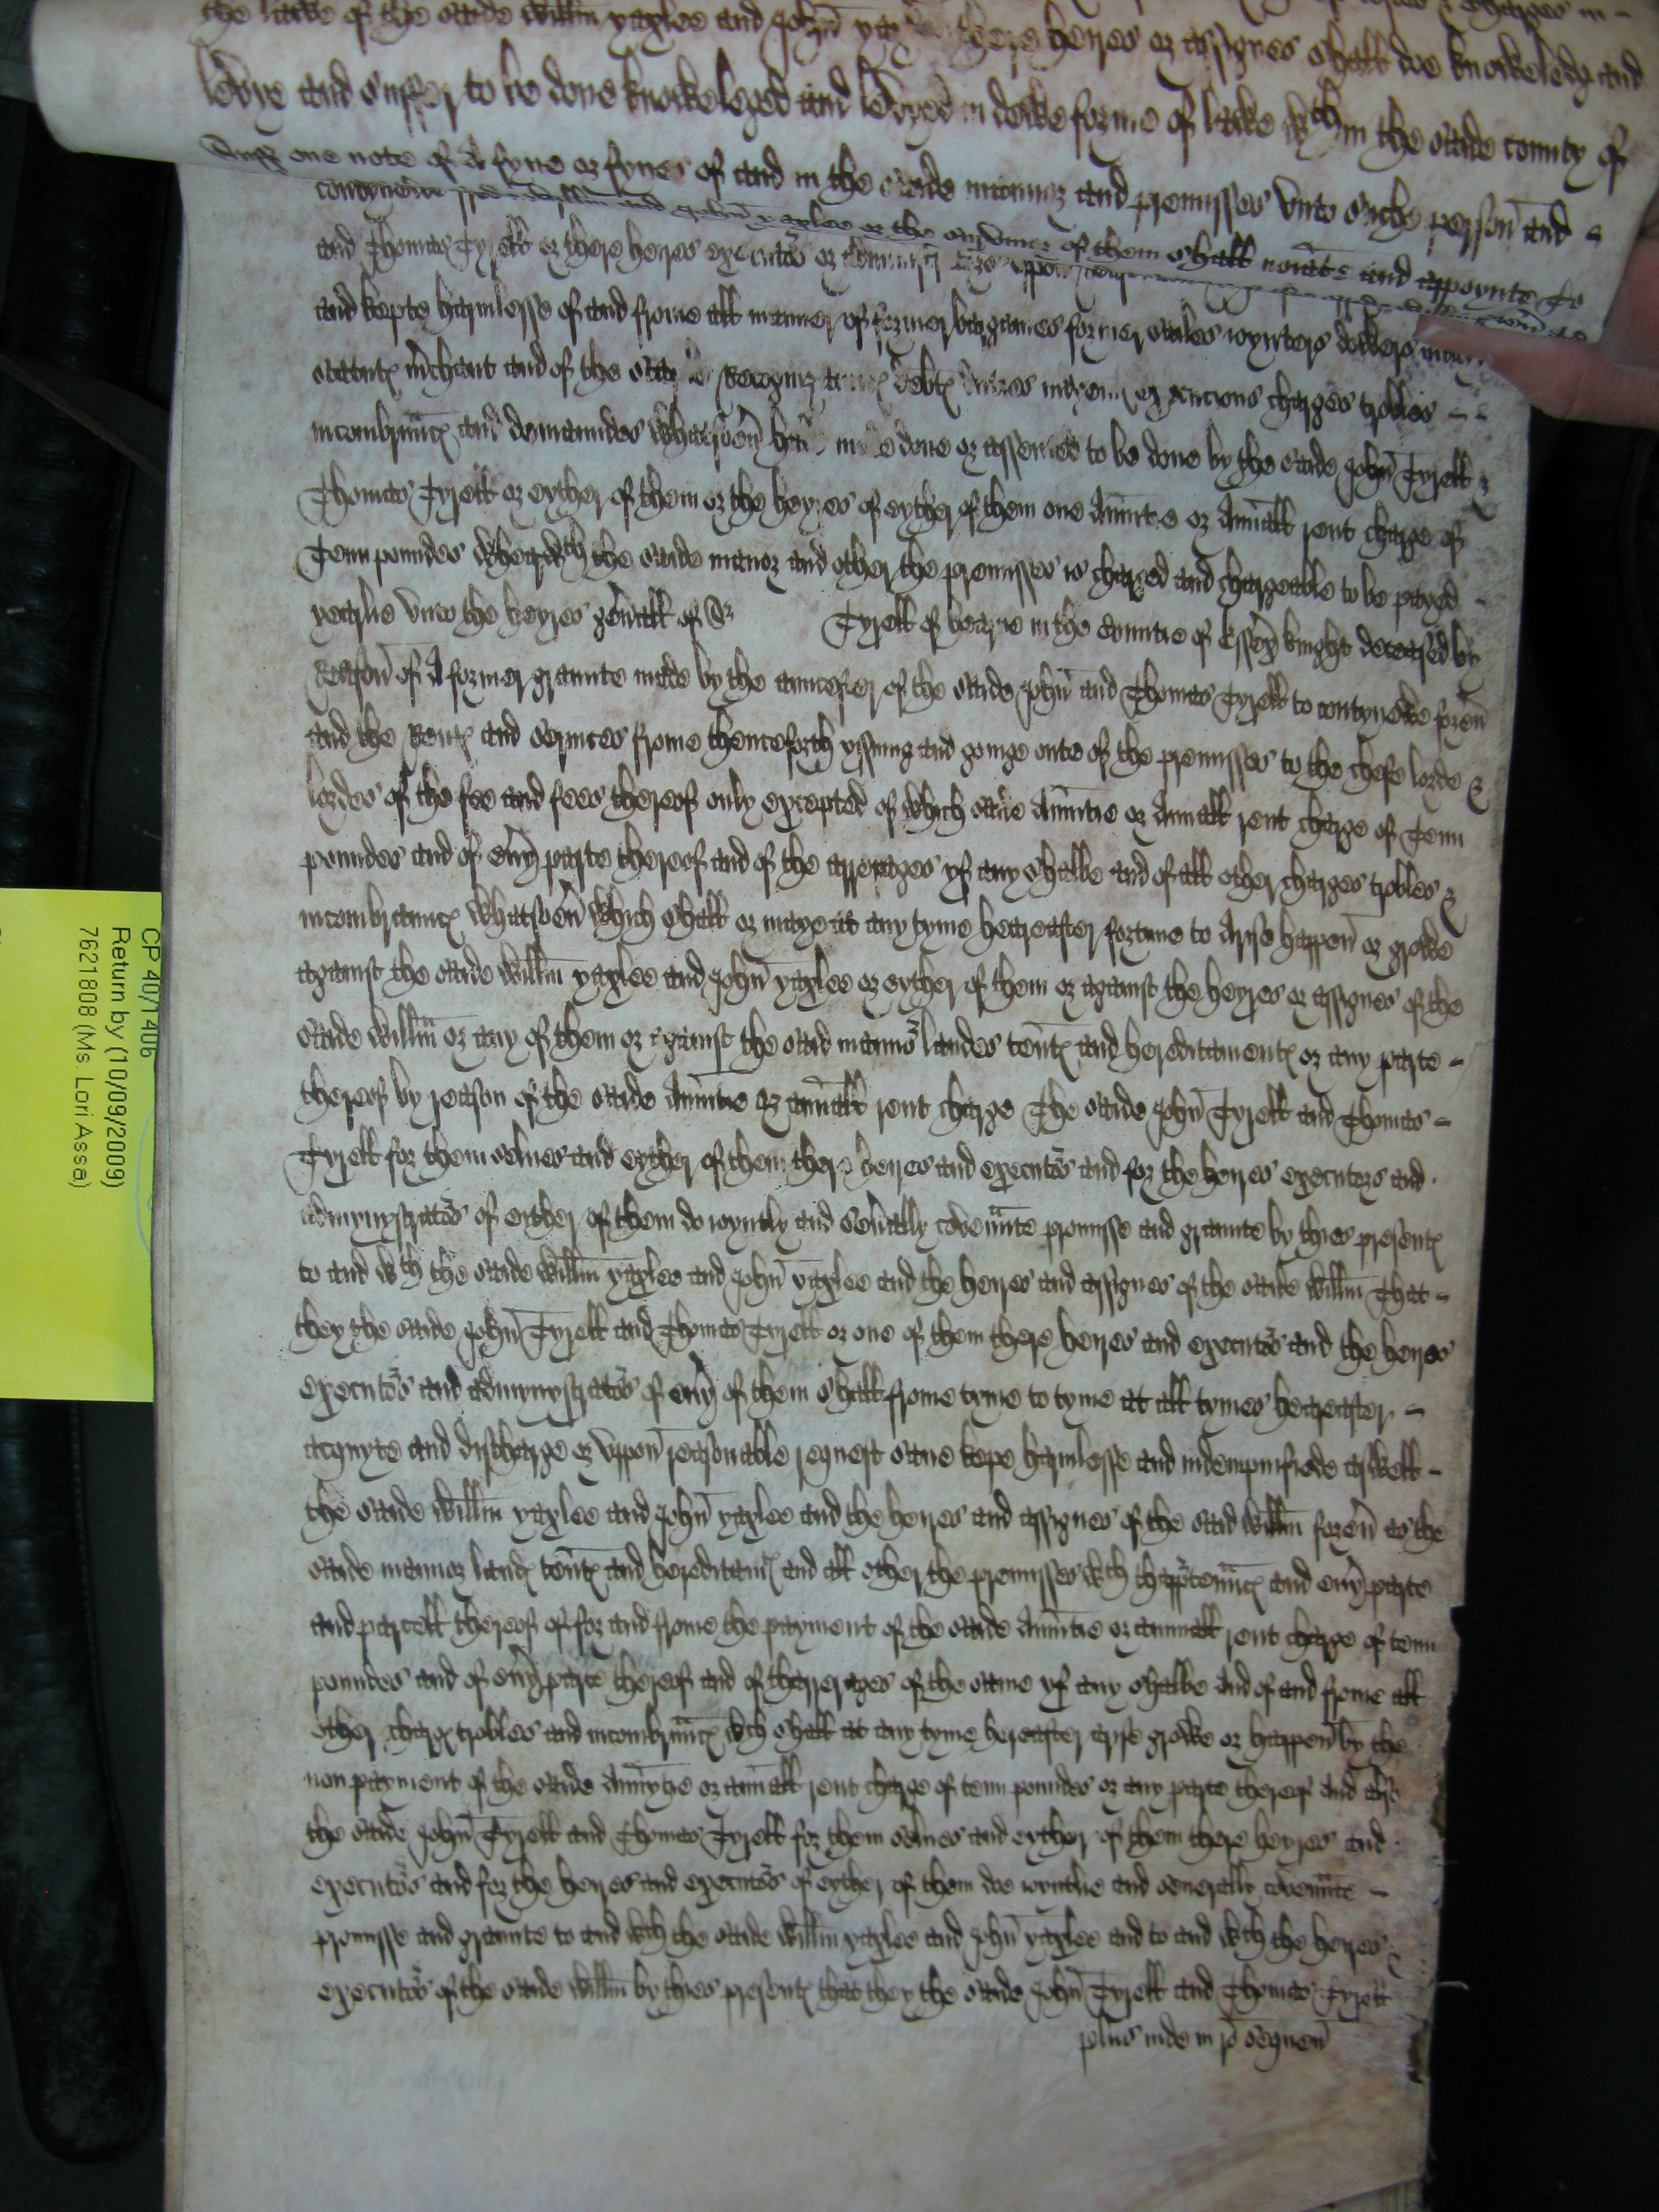 the lawe of the saide willm yaxlee and John heires or assignes shall doe knowledg and
levye and suffer to be done knowleged and levyed in dewe forme of lawe wth in the saide county of
one note of A fyne or fynes of and in the saide mannor and premisses vnto suche person and
willm and John yaxlee or the of them shall noiate and appoynte
and Thomas Tyrell or there heires executors or
and kepte harmlesse of and frome all manner of former bargaines former sales ioynters dowers
statute mchant and of the executions charges trobles
incombrance and demaundes whatsoeu made done or assented to be done by the saide John Tyrell &
Thomas Tyrell or eyther of them or the heyres of eyther of them one Annuitie or Annuall rent charge of
Tenn poundes the saide manor and other the premisses is charged and chargeable to be payed
yearlie vnto the heyres genall of Sr Tyrell of in the Countie of Essex knight deceased by
Reason of A former graunte made by the auncester of the saide John and Thomas Tyrell to contynewe foreu
and the Rente and services frome thenceforth yssuing and goinge oute of the premisses to the chefe lorde &
lordes of the fee and fees thereof only excepted of which saide Annuitie or Annuall rent charge of Tenn
poundes and of euy parte thereof and of the arrerages yf any shalbe and of all other charges trobles &
incombrance whatsoeu which shall or maye at any tyme heareafter fortune to Aryse happen or growe
against the saide willm yaxlee and John yaxlee or eyther of them or against the heyres or assignes of the
saide willm or any of them or against the said mannor landes tente and hereditamente or any parte
thereof by reason of the saide Annuitie or annuall rent charge The saide John Tyrell and Thomas
Tyrell for them selues and eyther of them there heires and executors and for the heires executors and
admynystrators of either of them do ioyntly and seually covennte promisse and graunte by thies presente
to and wth the saide willm yaxlee and John yaxlee and the heires and assignes of the saide willm That
they the saide John Tyrell and Thomas Tyrell or one of them there heires and executors and the heires
executors and admynystrators of euy of them shall frome tyme to tyme at all tymes heareafter
acquyte and discharge or vppon reasonable request saue kepe harmlesse and indempnifiede aswell
the saide willm yaxlee and John yaxlee and the heires and assignes of the said willm foreu as the
saide mannor lande tente and hereditame and all other the premisses wth thapptennce and euy parte
and parcell thereof of for and frome the payment of the saide Annuitie or annuall rent charge of tenn
poundes and of euy parte thereof and of tharrerages of the same yf any shalbe And of and frome all
other charge trobles and incombrance wch shall at any tyme hereafter aryse growe or happen by the
non payment of the saide Annuytie or annuall rent charge of tenn poundes or any parte thereof And
the saide John Tyrell and Thomas Tyrell for them selues and eyther of them there heyres and
executors and for the heires and executors of eyther of them doe ioyntlie and seuerally covennte
promisse and graunte to and wth the saide willm yaxlee and John yaxlee and to and wth the heires
executors of the saide willm by thies presente that they the saide John Tyrell and Thomas Tyrell
plus inde in ro sequen
CP 40/1406
Return by (10/09/2009)
7621808 (Ms. Lori Assa)